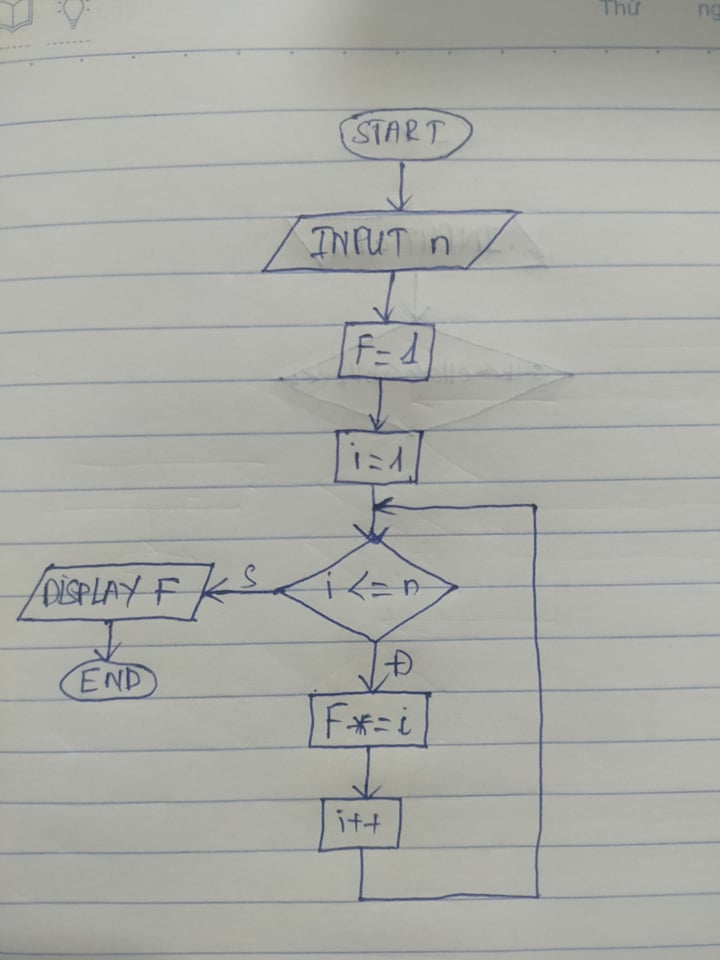 Thứ ng
START
INPUT n
F=1
i=1
i <= n
S
DISPLAY F
END
Đ
F*=i
i++